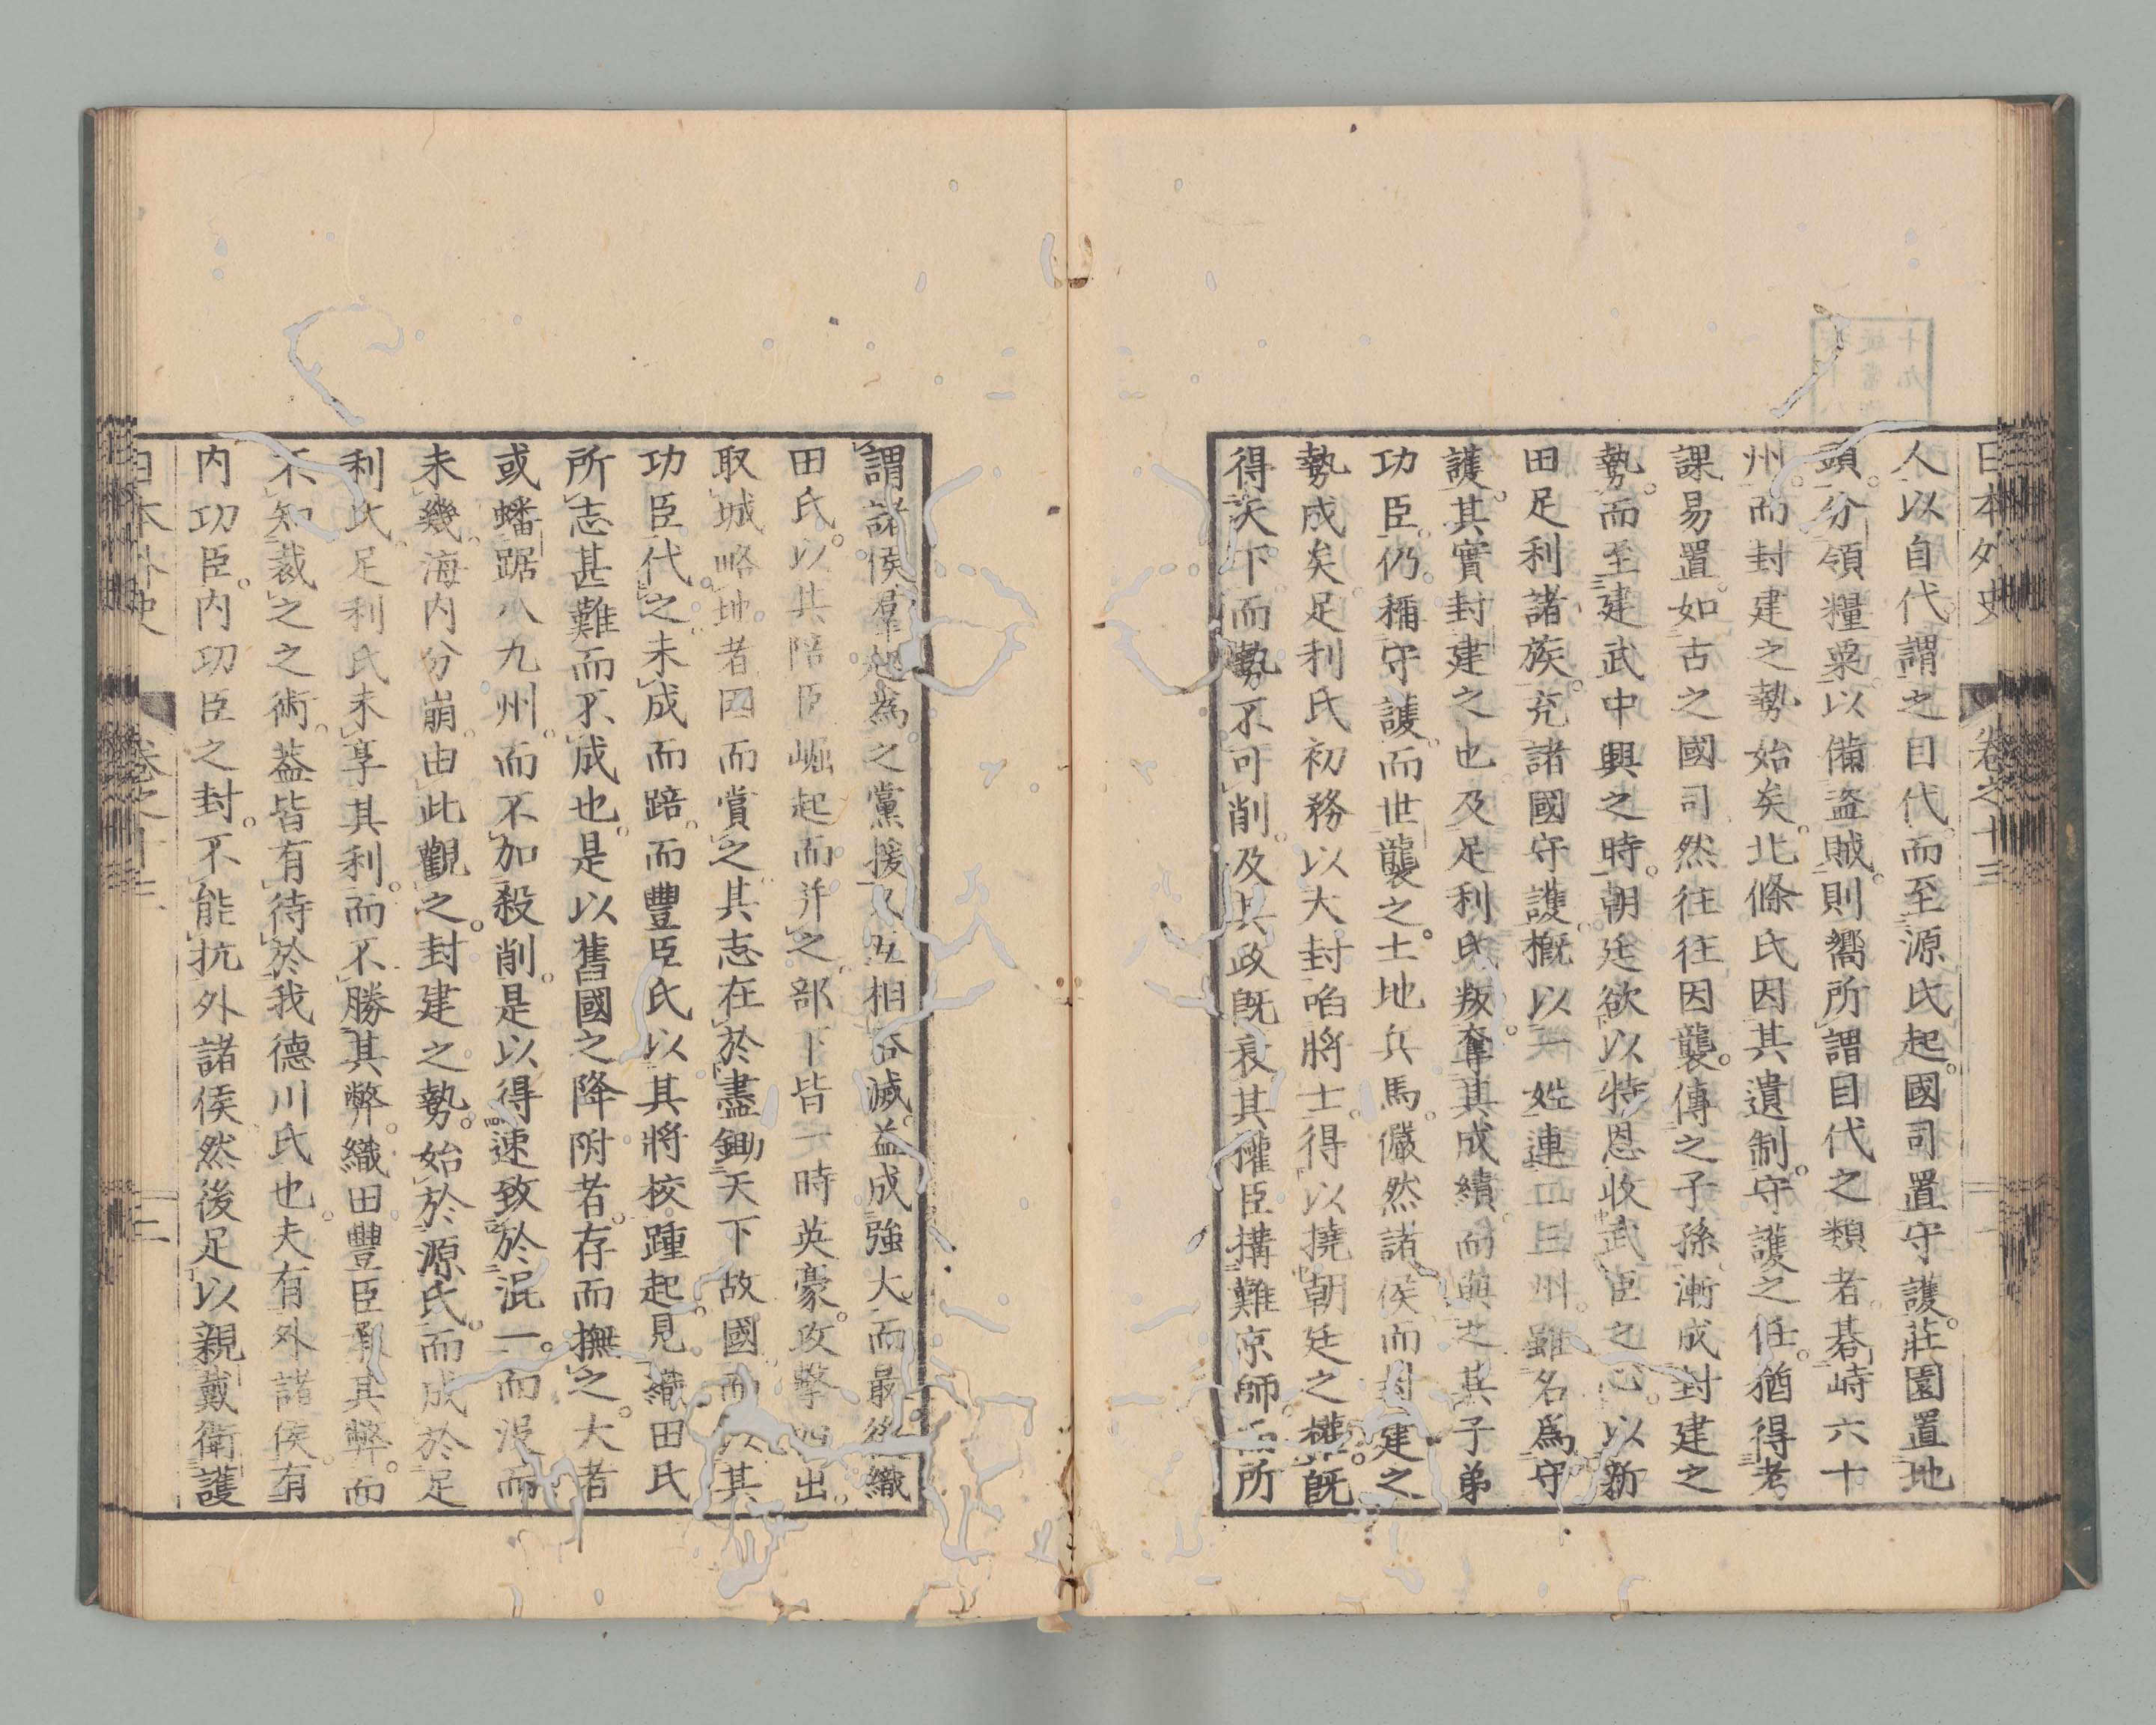 日本外史 卷之十三
人以自代。謂之目代。而至源氏起。國司置守護。莊園置地
頭。分領糧粟。以備盜賊。則嚮所謂目代之類者。碁峙六十
州。而封建之勢始矣。北條氏因其遺制。守護之任。猶得考
課易置。如古之國司。然往往因襲。傳之子孫。漸成封建之
勢。而至建武中興之時。朝廷欲以特恩收武臣之心。以新
田足利諸族。充諸國守護。概以一姓連二三州。雖名爲守
護。其實封建之也。及足利氏叛。奪其成績。而與之其子弟
功臣。仍稱守護。而世襲之。土地兵馬。儼然諸侯。而封建之
勢成矣。足利氏初務以大封啗將士。得以撓朝廷之權。既
得天下。而勢不可削。及其政既衰。其權臣搆難京師。而所
謂諸侯羣起爲之黨援。又互相呑滅。益成強大。而最後織
田氏。以其陪臣崛起而并之。部下皆一時英豪。攻擊四出。
取城略地者。因而賞之。其志在於盡鋤天下故國。而以其
功臣代之。未成而踣。而豐臣氏以其將校踵起。見織田氏
所志甚難而不成也。是以舊國之降附者。存而撫之。大者
或蟠踞八九州。而不加殺削。是以得速致於混一。而沒而
未幾。海内分崩。由此觀之。封建之勢。始於源氏。而成於足
利氏。足利氏未享其利。而不勝其弊。織田豐臣承其弊。而
不知裁之之術。蓋皆有待於我德川氏也。夫有外諸侯。有
内功臣。内功臣之封。不能抗外諸侯。然後足以親戴衛護
日本外史 卷之十三 二